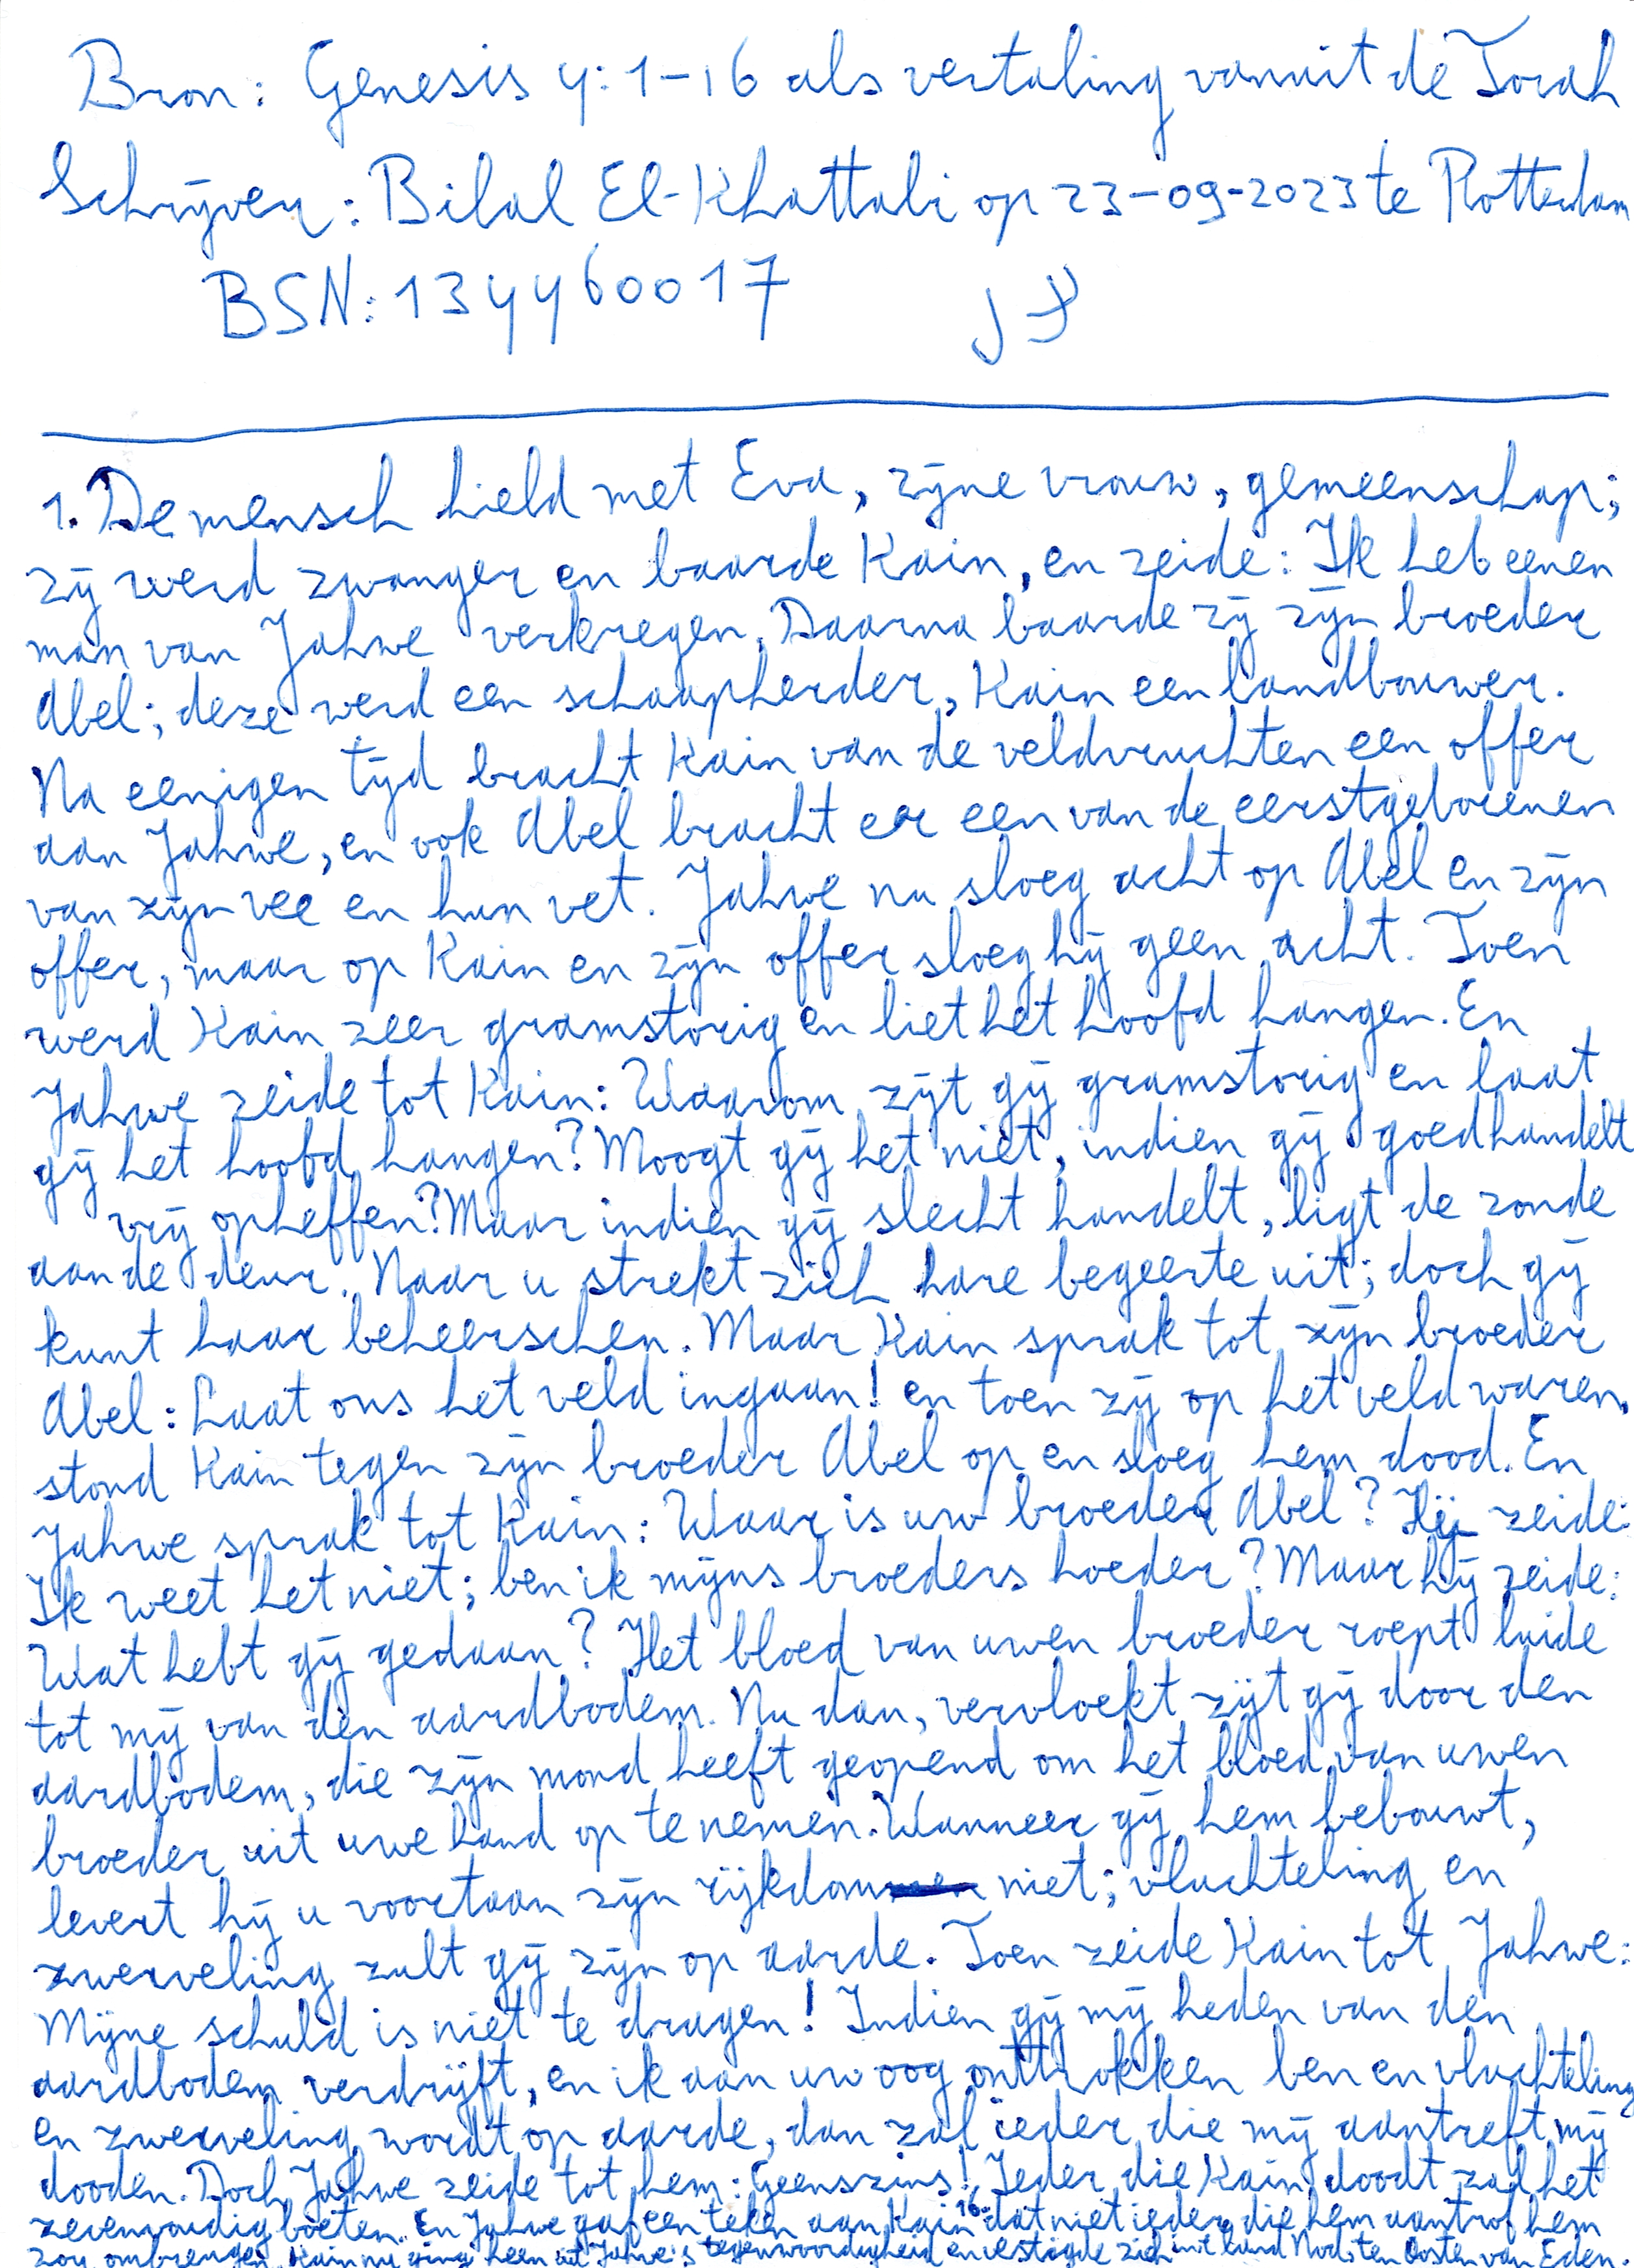 Bron: Genesis 4:1-16 als vertaling vanuit de Torah
Schrijver: Bilal El-Khattabi op 23-09-2023 te Rotterdam
BSN: 134460017
1. De mensch hield met Eva, zijne vrouw, gemeenschap;
zij werd zwanger en baarde Kain, en zeide: Ik heb eenen
man van Jahwe verkregen. Daarna baarde zij zijn broeder
Abel; deze werd een schaapherder, Kain een landbouwer.
Na eenigen tijd bracht Kain van de veldvruchten een offer
aan Jahwe, en ook Abel bracht er een van de eerstgeborenen
van zijn vee en hun vet. Jahwe nu sloeg acht op Abel en zijn
offer, maar op Kain en zijn offer sloeg hij geen acht. Toen
werd Kain zeer gramstorig en liet het hoofd hangen. En
Jahwe zeide tot Kain: Waarom zijt gij gramstorig en laat
gij het hoofd hangen? Moogt gij het niet, indien gij goed handelt
vrij opheffen? Maar indien gij slecht handelt, ligt de zonde
aan de deur. Naar u strekt zich hare begeerte uit; doch gij
kunt haar beheerschen. Maar Kain sprak tot zijn broeder
Abel: Laat ons het veld ingaan! en toen zij op het veld waren,
stond Kain tegen zijn broeder Abel op en sloeg hem dood. En
Jahwe sprak tot Kain: Waar is uw broeder Abel? Hij zeide:
Ik weet het niet; ben ik mijns broeders hoeder? Maar hij zeide:
Wat hebt gij gedaan? Het bloed van uwen broeder roept luide
tot mij van den aardbodem. Nu dan, vervloekt zijt gij door den
aardbodem, die zijn mond heeft geopend om het bloed van uwen
broeder uit uwe hand op te nemen. Wanneer gij hem bebouwt,
levert hij u voortaan zijn rijkdom niet; vluchteling en
zwerveling zult gij zijn op aarde. Toen zeide Kain tot Jahwe:
Mijne schuld is niet te dragen! Indien gij mij heden van den
aardbodem verdrijft, en ik aan uw oog onttrokken ben en vluchteling
en zwerveling wordt op aarde, dan zal ieder die mij aantreft mij
dooden. Doch Jahwe zeide tot hem: Geenszins! Ieder die Kain doodt zal het
zevenvoudig boeten. En Jahwe gaf een teken aan Kain dat niet ieder die hem aantrof hem
zou ombrengen. 16. Kain nu ging heen uit Jahwe's tegenwoordigheid en vestigde zich in 't land Nod ten Oosten van Eden.